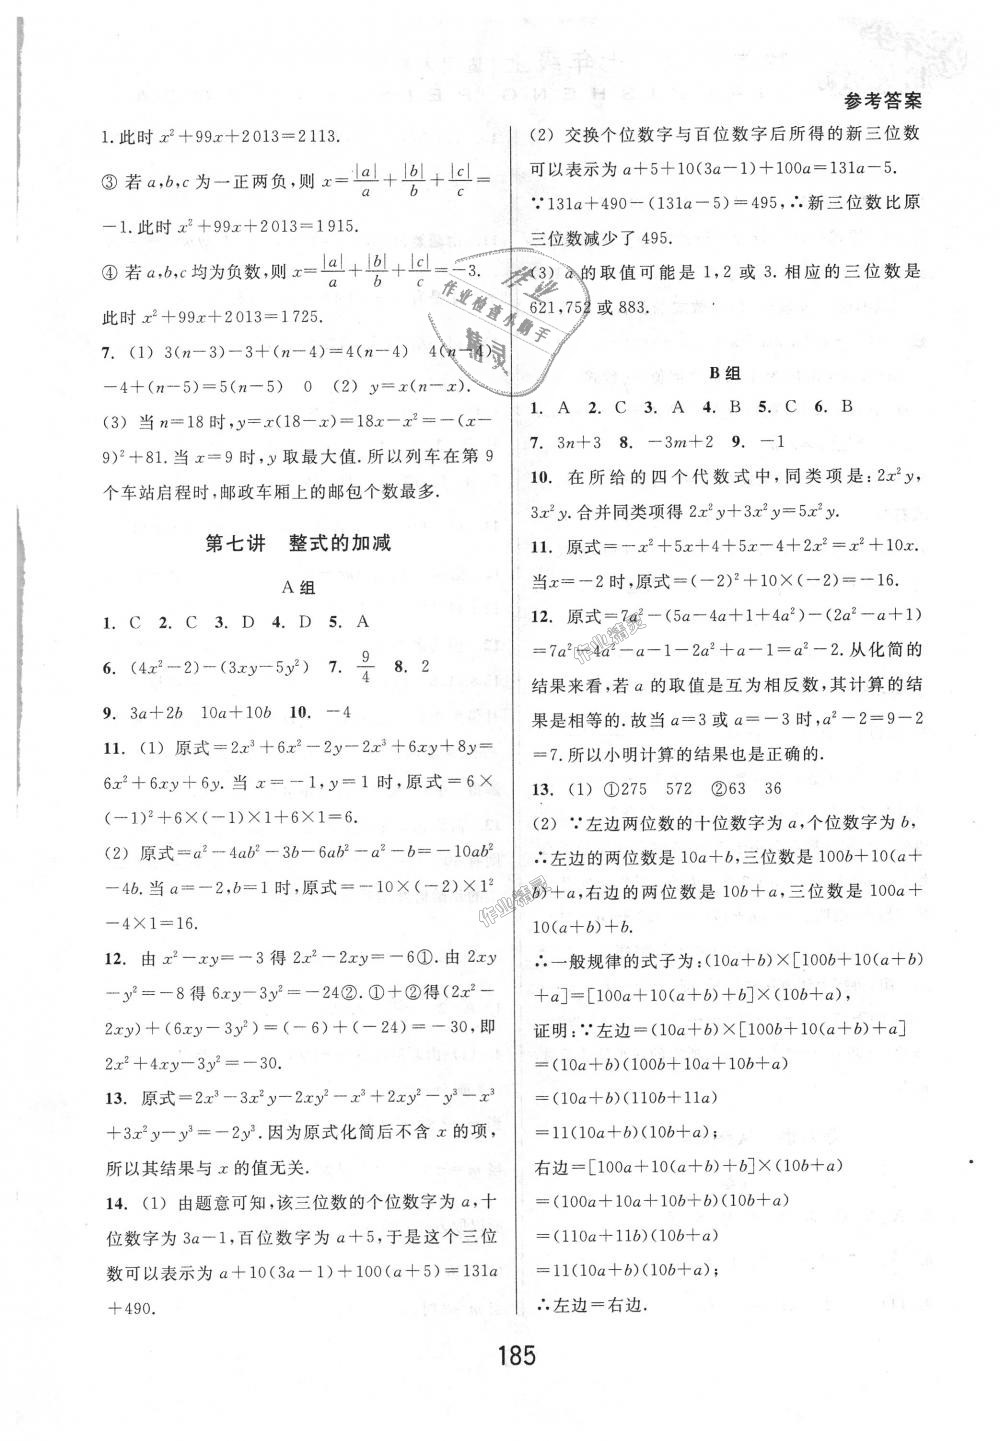 参考答案
1.此时 x²+99x+2013=2113.
③ 若 a,b,c 为一正两负,则 x=|a|/a+|b|/b+|c|/c=
-1.此时 x²+99x+2013=1915.
④ 若 a,b,c 均为负数,则 x=|a|/a+|b|/b+|c|/c=-3.
此时 x²+99x+2013=1725.
7. (1) 3(n-3)-3+(n-4)=4(n-4) 4(n-4)
-4+(n-5)=5(n-5) 0 (2) y=x(n-x).
(3) 当 n=18 时,y=x(18-x)=18x-x²=-(x-
9)²+81.当 x=9 时,y 取最大值.所以列车在第 9
个车站启程时,邮政车厢上的邮包个数最多.
第七讲 整式的加减
A 组
1. C 2. C 3. D 4. D 5. A
6. (4x²-2)-(3xy-5y²) 7. 9/4 8. 2
9. 3a+2b 10a+10b 10. -4
11. (1) 原式=2x³+6x²-2y-2x³+6xy+8y=
6x²+6xy+6y.当 x=-1,y=1 时,原式=6×
(-1)²+6×(-1)×1+6×1=6.
(2) 原式=a²-4ab²-3b-6ab²-a²-b=-10ab²
-4b.当 a=-2,b=1 时,原式=-10×(-2)×1²
-4×1=16.
12. 由 x²-xy=-3 得 2x²-2xy=-6①.由 2xy
-y²=-8 得 6xy-3y²=-24②.①+②得(2x²-
2xy)+(6xy-3y²)=(-6)+(-24)=-30,即
2x²+4xy-3y²=-30.
13. 原式=2x³-3x²y-2xy²-x³+2xy²-y³-x³
+3x²y-y³=-2y³.因为原式化简后不含 x 的项,
所以其结果与 x 的值无关.
14. (1) 由题意可知,该三位数的个位数字为 a,十
位数字为 3a-1,百位数字为 a+5,于是这个三位
数可以表示为 a+10(3a-1)+100(a+5)=131a
+490.
(2) 交换个位数字与百位数字后所得的新三位数
可以表示为 a+5+10(3a-1)+100a=131a-5.
∵131a+490-(131a-5)=495,∴新三位数比原
三位数减少了 495.
(3) a 的取值可能是 1,2 或 3.相应的三位数是
621,752 或 883.
B 组
1. A 2. C 3. A 4. B 5. C 6. B
7. 3n+3 8. -3m+2 9. -1
10. 在所给的四个代数式中,同类项是:2x²y,
3x²y.合并同类项得 2x²y+3x²y=5x²y.
11. 原式=-x²+5x+4+5x-4+2x²=x²+10x.
当x=-2 时,原式=(-2)²+10×(-2)=-16.
12. 原式=7a²-(5a-4a+1+4a²)-(2a²-a+1)
=7a²-4a²-a-1-2a²+a-1=a²-2.从化简的
结果来看,若 a 的取值是互为相反数,其计算的结
果是相等的.故当 a=3 或 a=-3 时,a²-2=9-2
=7.所以小明计算的结果也是正确的.
13. (1) ①275 572 ②63 36
(2) ∵左边两位数的十位数字为 a,个位数字为 b,
∴左边的两位数是 10a+b,三位数是 100b+10(a+
b)+a,右边的两位数是 10b+a,三位数是 100a+
10(a+b)+b.
∴一般规律的式子为:(10a+b)×[100b+10(a+b)
+a]=[100a+10(a+b)+b]×(10b+a),
证明:∵左边=(10a+b)×[100b+10(a+b)+a]
=(10a+b)(100b+10a+10b+a)
=(10a+b)(110b+11a)
=11(10a+b)(10b+a);
右边=[100a+10(a+b)+b]×(10b+a)
=(100a+10a+10b+b)(10b+a)
=(110a+11b)(10b+a)
=11(10a+b)(10b+a);
∴左边=右边.
作业
作业检查小助手
精灵
作业精灵
作业精灵
185